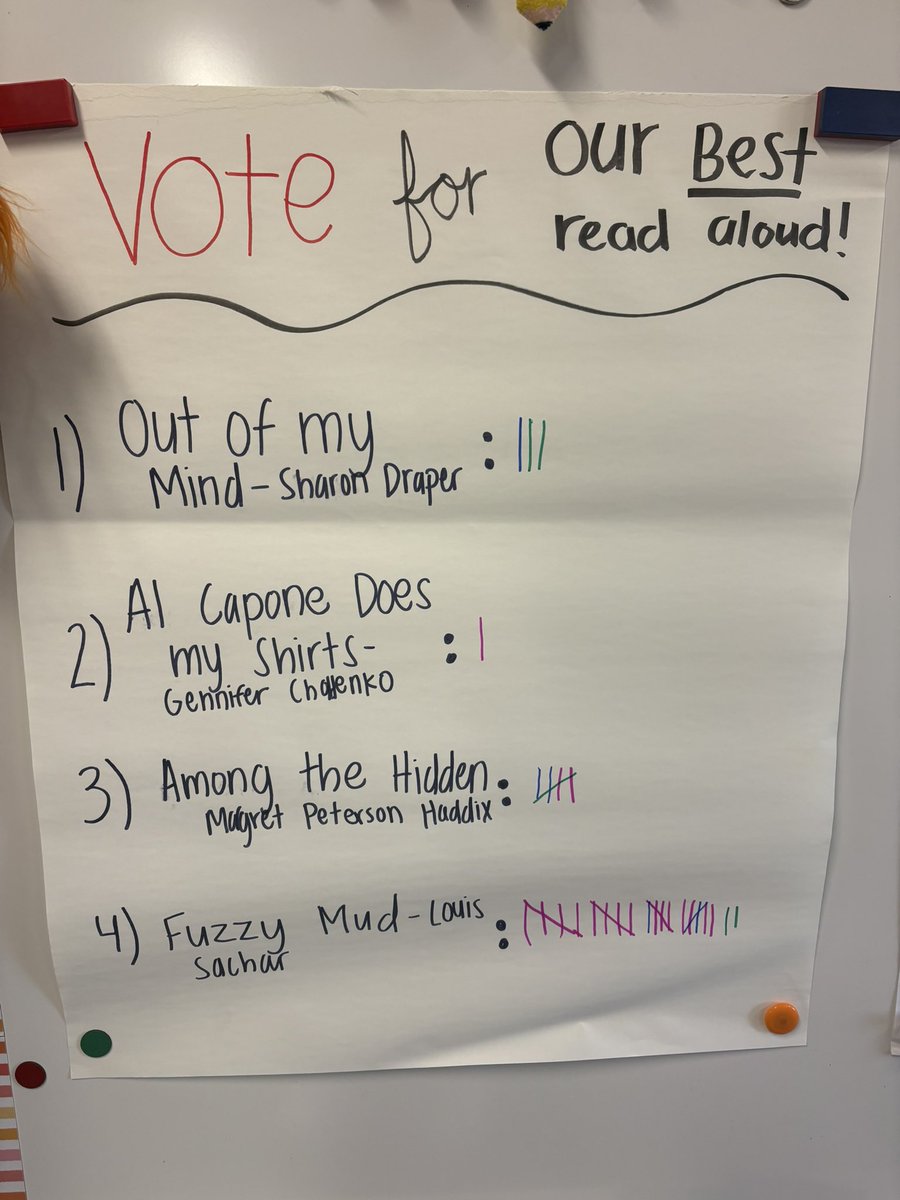 Vote for our Best
read aloud!
1) Out of my
Mind - Sharon Draper :
2) Al Capone Does
my Shirts -
Gennifer Choldenko :
3) Among the Hidden :
Magret Peterson Haddix
4) Fuzzy Mud - Louis :
Sachar